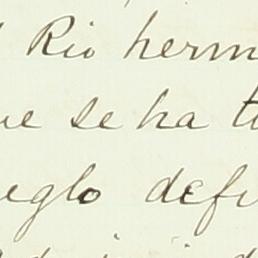 Rio herm
ue se ha t
eglo defi